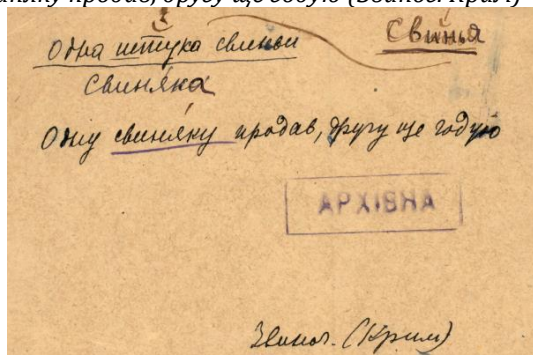 няку продав, другу ще годую (Звиног. Крим)
3
Одна штука свиньи Свинья
Свиня́ка
Одну свиняку продав, другу ще годую
АРХІВНА
Звиног. (Крим)